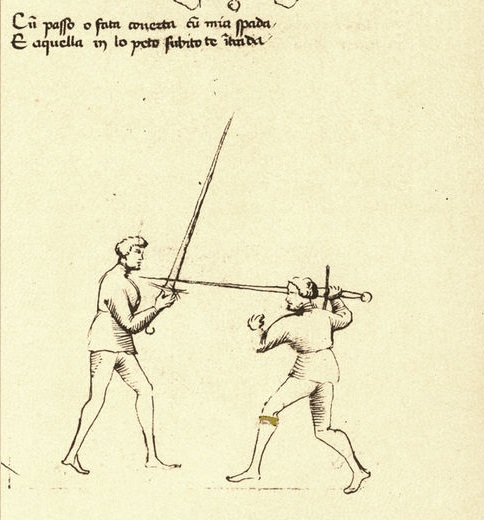 Cū passo o fata couerta cū mia spada
E aquella in lo peto subito te ītada